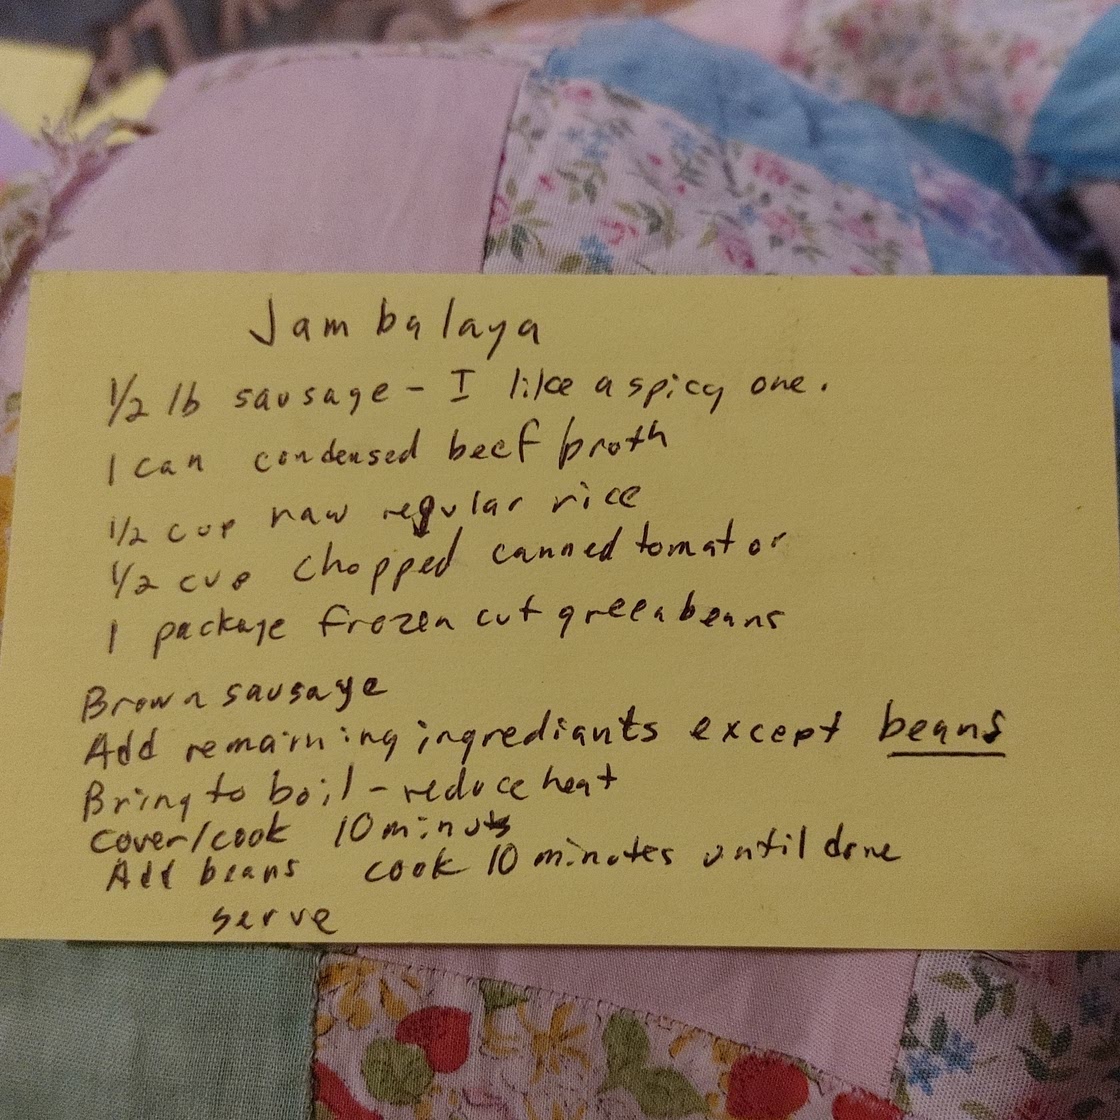 Jambalaya
1/2 lb sausage - I like a spicy one.
1 can condensed beef broth
1/2 cup raw regular rice
1/2 cup chopped canned tomator
1 package frozen cut green beans
Brown sausage
Add remaining ingrediants except beans
Bring to boil - reduce heat
cover/cook 10 minuts
Add beans cook 10 minutes until done
serve